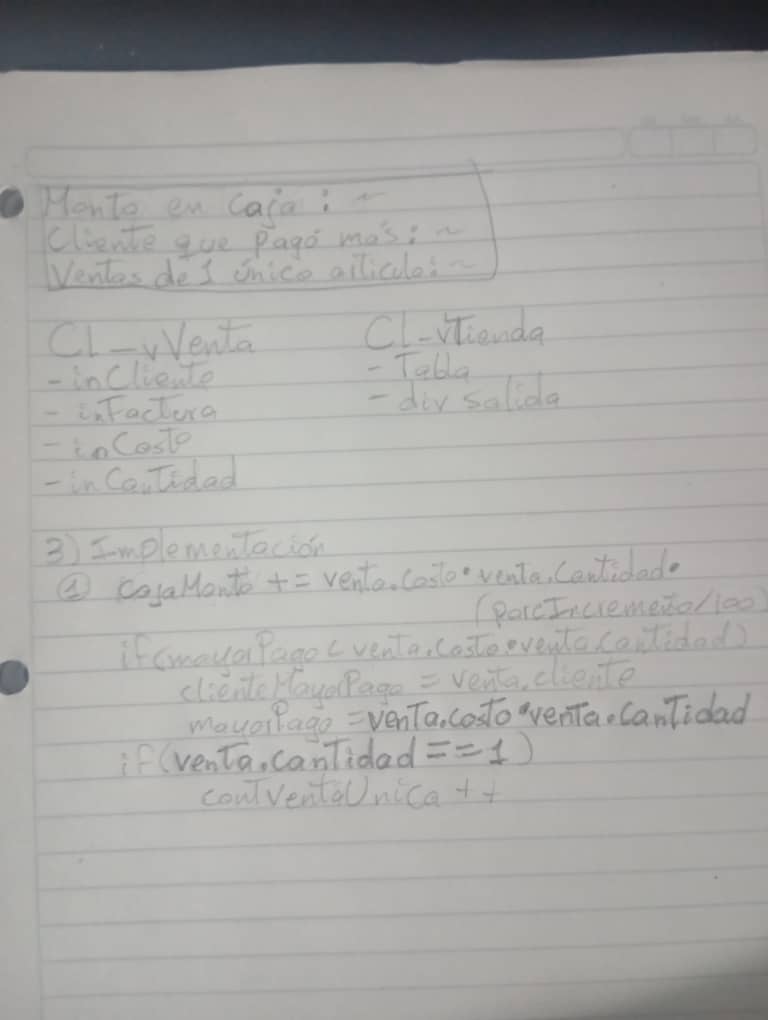 Monto en Caja: ~
Cliente que pagó más: ~
Ventas de 1 único articulo: ~
Cl_vVenta
- inCliente
- inFactura
- inCosto
- inCantidad
Cl_vTienda
- Tabla
- div salida
3) Implementación
① cajaMonto += venta.costo * venta.cantidad *
(porcIncremento/100)
if(mayorPago < venta.costo * venta.cantidad)
clienteMayorPago = venta.cliente
mayorPago = venta.costo * venta.cantidad
if(venta.cantidad == 1)
contVentaUnica ++